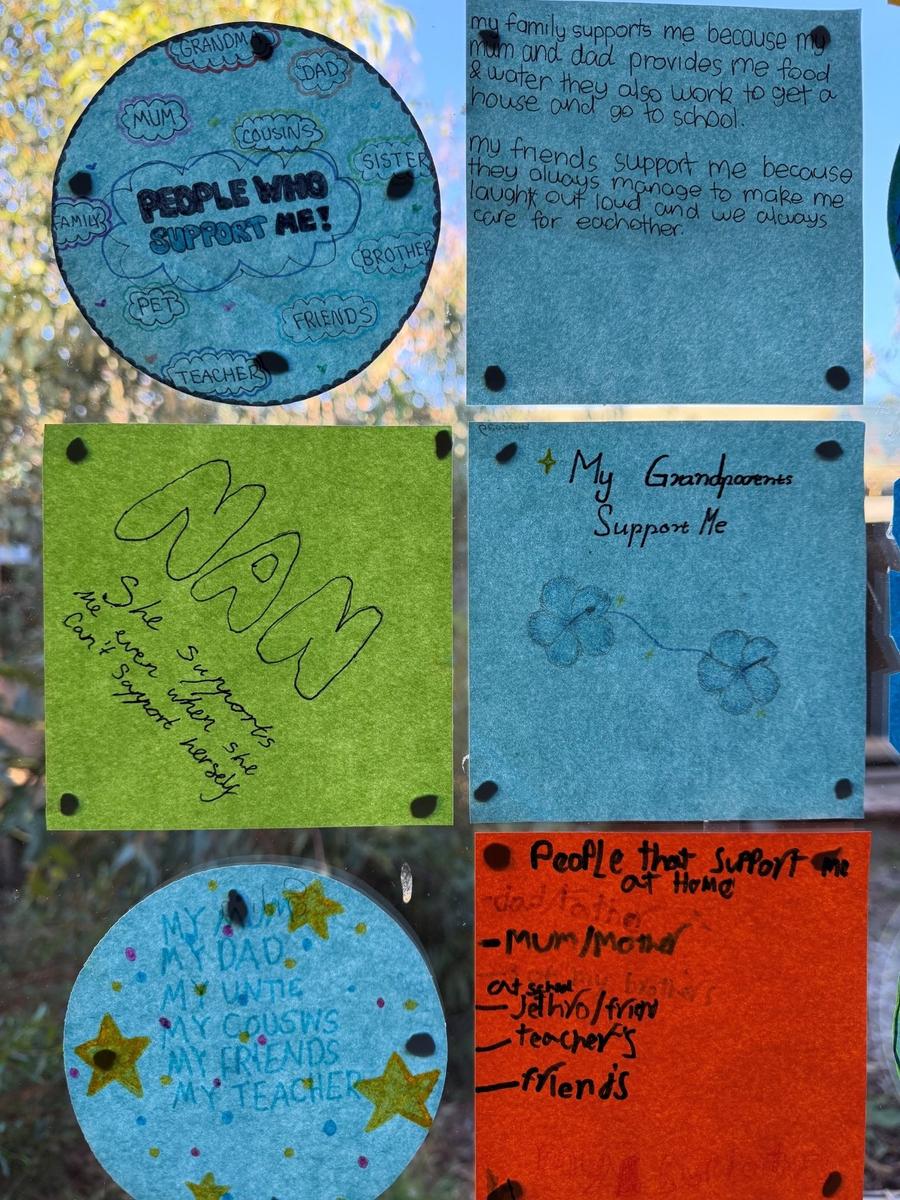 GRANDMA
DAD
MUM
COUSINS
SISTER
PEOPLE WHO
SUPPORT ME!
FAMILY
BROTHER
PET
FRIENDS
TEACHER
my family supports me because my
mum and dad provides me food
& water they also work to get a
house and go to school.
my friends support me because
they always manage to make me
laugh out loud and we always
care for eachother.
NAN
She supports
me even when she
Can't support herself
My Grandparents
Support Me
MY MUM
MY DAD
MY UNTIE
MY COUSINS
MY FRIENDS
MY TEACHER
People that support me
at Home
-dad/father
-Mum/Mother
at school
-Jethro/friend
-teacher's
-friends